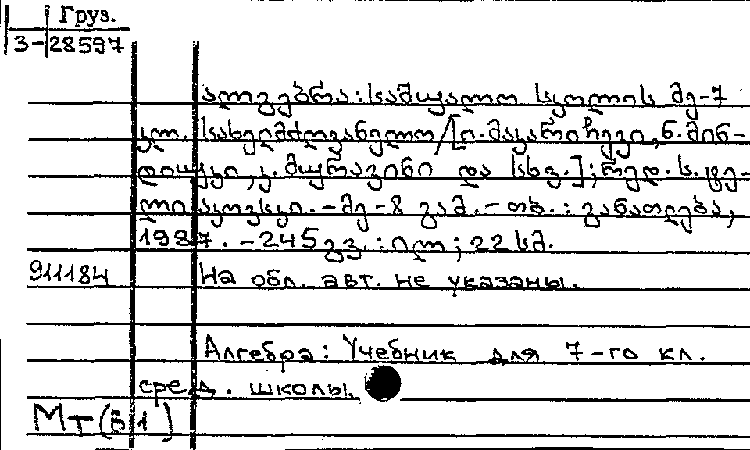 Груз.
3-28597
ალგებრა: საშუალო სკოლის მე-7
კლ. სახელმძღვანელო/[ი. მაკარიჩევი, ნ. მინ-
დიუკი, კ. მურავინი და სხვ.]; რედ. ს. ტე-
ლიაკოვსკი. - მე-8 გამ. - თბ.: განათლება,
1987. - 245 გვ.: ილ; 22 სმ.
911184 На обл. авт. не указаны.
Алгебра: Учебник для 7-го кл.
сред. школы.
МТ(51)